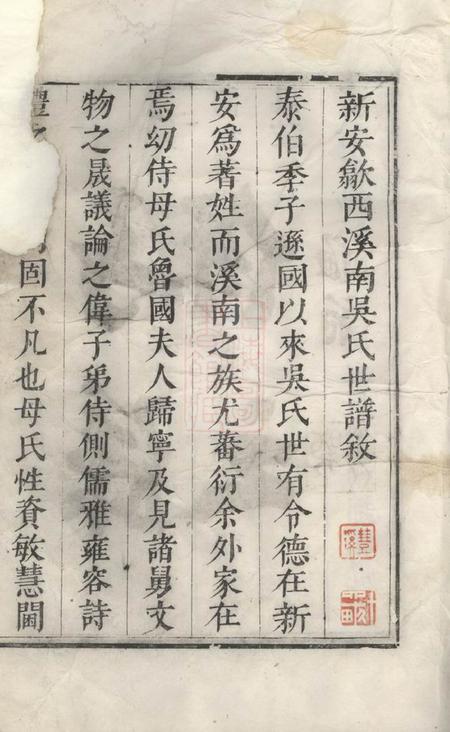 新安歙西溪南吳氏世譜敘
泰伯季子遜國以來吳氏世有令德在新
安爲著姓而溪南之族尤蕃衍余外家在
焉幼侍母氏魯國夫人歸寧及見諸舅文
物之晟議論之偉子弟侍側儒雅雍容詩
禮之固不凡也母氏性資敏慧閫
豐溪